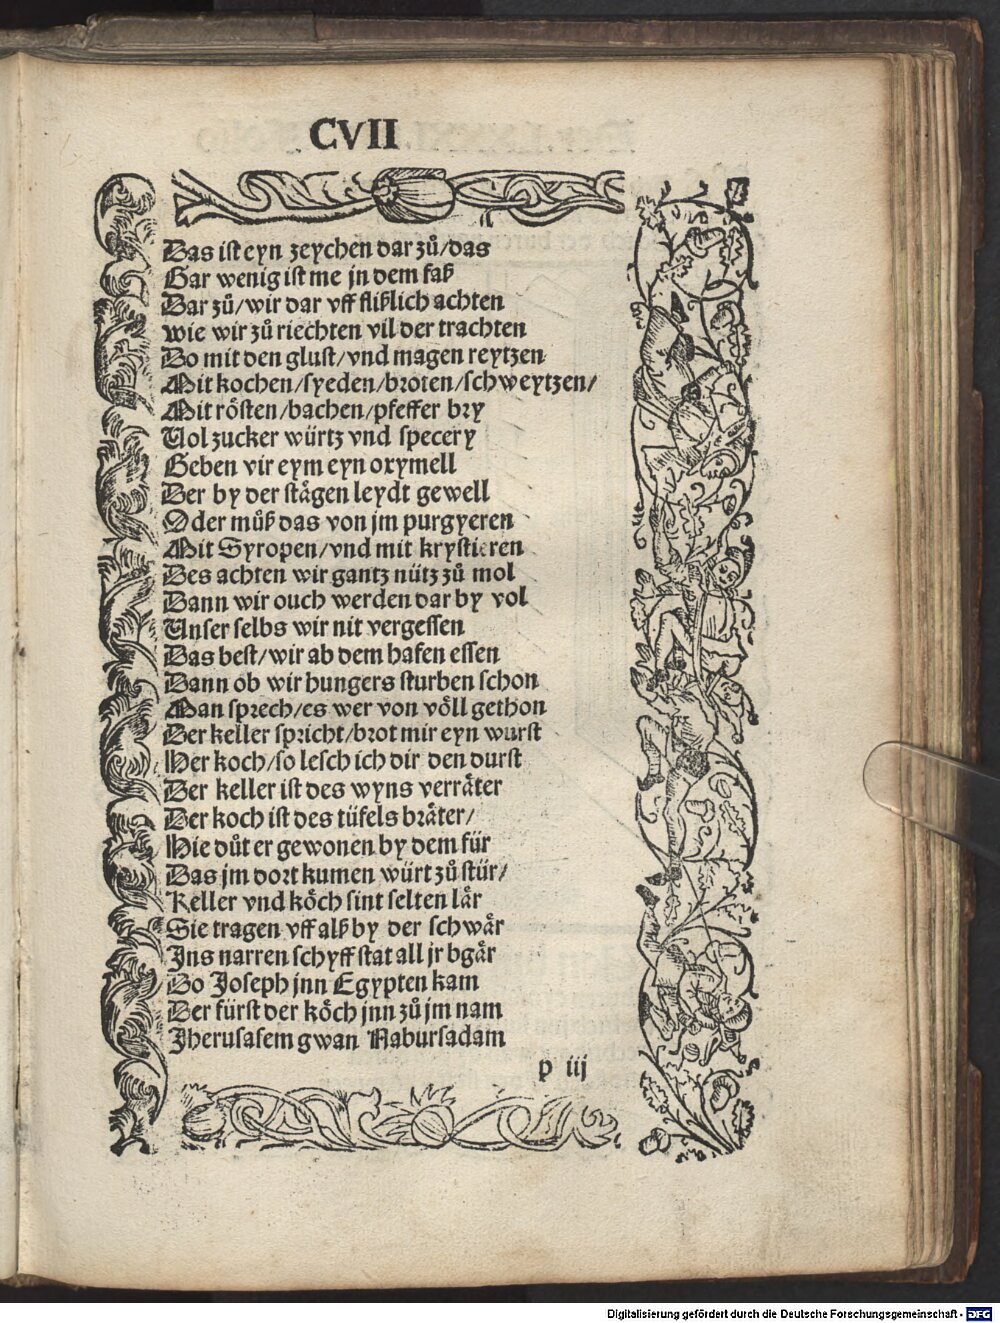 CVII
Das ist eyn zeychen dar zuͦ/das
Gar wenig ist me jn dem faß
Dar zuͦ/wir dar vff flißlich achten
wie wir zuͦ riechten vil der trachten
Do mit den glust/vnd magen reytzen
Mit kochen/syeden/broten/schweytzen/
Mit rösten/bachen/pfeffer bry
Uol zucker würtz vnd specery
Geben vir eym eyn oxymell
Der by der stägen leydt gewell
Oder muͦß das von jm purgyeren
Mit Syropen/vnd mit krystieren
Des achten wir gantz nütz zuͦ mol
Dann wir ouch werden dar by vol
Unser selbs wir nit vergessen
Das best/wir ab dem hafen essen
Dann ob wir hungers sturben schon
Man sprech/es wer von völl gethon
Der keller spricht/brot mir eyn wurst
Her koch/so lesch ich dir den durst
Der keller ist des wyns verräter
Der koch ist des tüfels bräter/
Hie duͦt er gewonen by dem für
Das jm dort kumen würt zuͦ stür/
Keller vnd köch sint selten lär
Sie tragen vff alß by der schwär
Jns narren schyff stat all jr bgär
Do Joseph jnn Egypten kam
Der fürst der köch jnn zuͦ jm nam
Jherusalem gwan Nabursadam
p iij
Digitalisierung gefördert durch die Deutsche Forschungsgemeinschaft - DFG